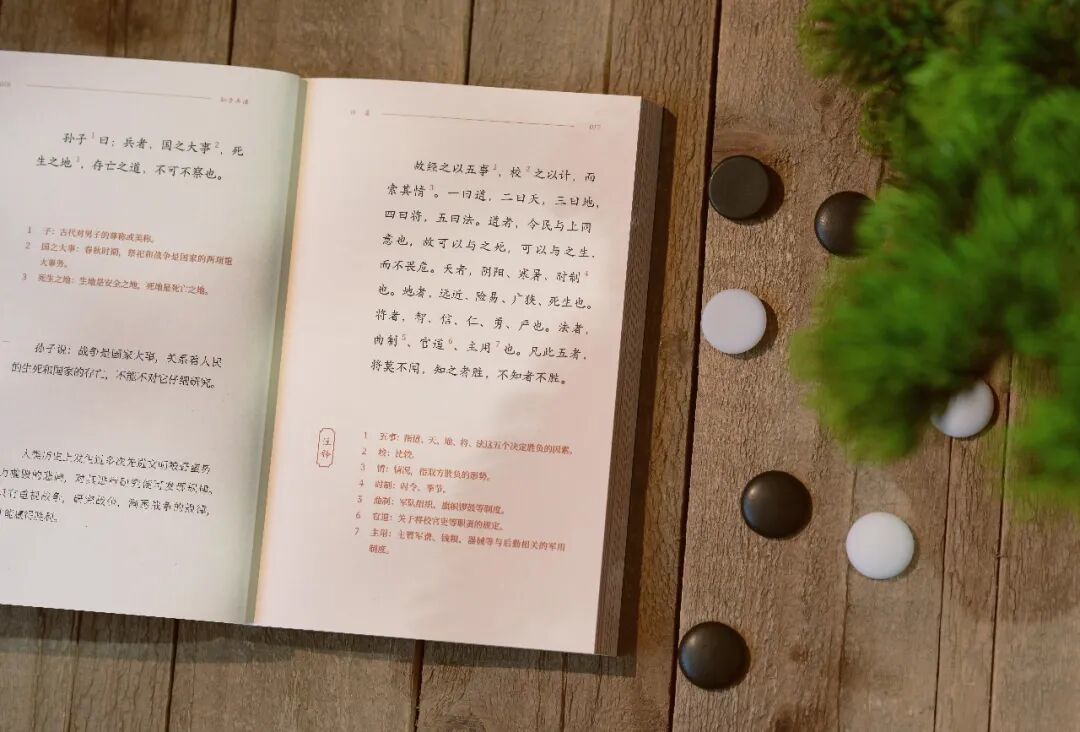 孙子兵法
孙子1曰：兵者，国之大事2，死
生之地3，存亡之道，不可不察也。
1 子：古代对男子的尊称或美称。
2 国之大事：春秋时期，祭祀和战争是国家的两项重
大事务。
3 死生之地：生地是安全之地，死地是死亡之地。
孙子说：战争是国家大事，关系着人民
的生死和国家的存亡，不能不对它仔细研究。
人类历史上发生过多次先进文明被野蛮势
计 篇
017
故经之以五事1，校2之以计，而
索其情3。一曰道，二曰天，三曰地，
四曰将，五曰法。道者，令民与上同
意也，故可以与之死，可以与之生，
而不畏危。天者，阴阳、寒暑、时制4
也。地者，远近、险易、广狭、死生也。
将者，智、信、仁、勇、严也。法者，
曲制5、官道6、主用7也。凡此五者，
将莫不闻，知之者胜，不知者不胜。
注释
1 五事：指道、天、地、将、法这五个决定胜负的因素。
2 校：比较。
3 情：情况，指敌方胜负的形势。
4 时制：时令、季节。
5 曲制：军队组织、旗帜锣鼓等制度。
6 官道：关于将校官吏等职责的规定。
7 主用：主管军费、钱粮、器械等与后勤相关的军用
制度。